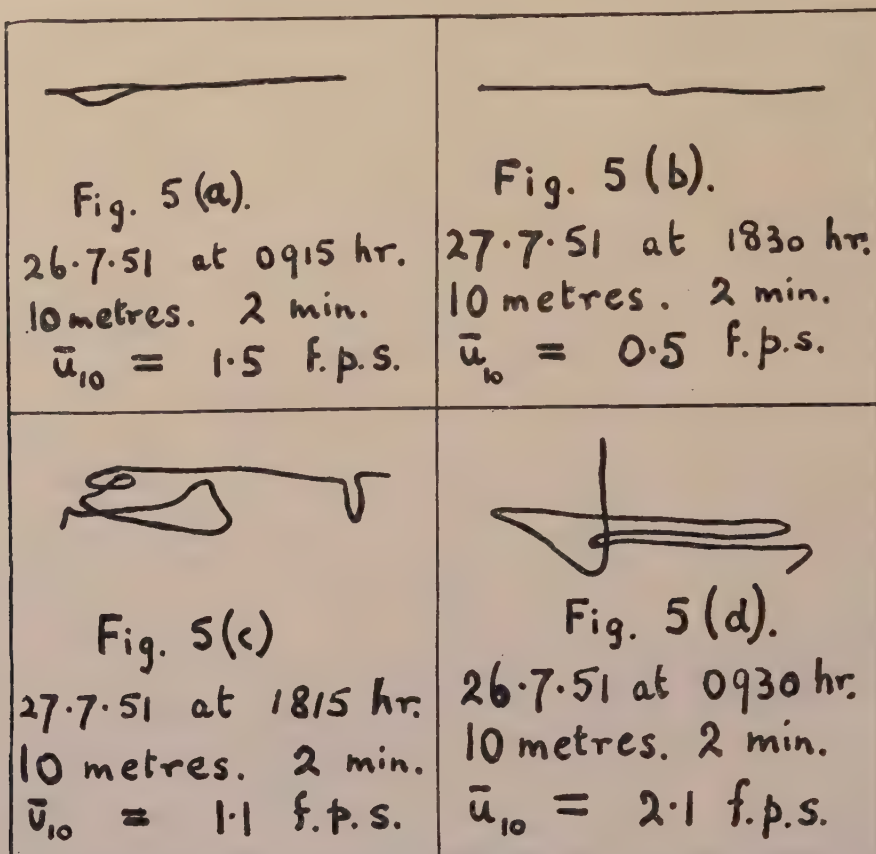 Fig. 5 (a).
26·7·51 at 0915 hr.
10 metres. 2 min.
ū₁₀ = 1·5 f.p.s.
Fig. 5 (b).
27·7·51 at 1830 hr.
10 metres. 2 min.
ū₁₀ = 0·5 f.p.s.
Fig. 5(c)
27·7·51 at 1815 hr.
10 metres. 2 min.
ū₁₀ = 1·1 f.p.s.
Fig. 5(d).
26·7·51 at 0930 hr.
10 metres. 2 min.
ū₁₀ = 2·1 f.p.s.